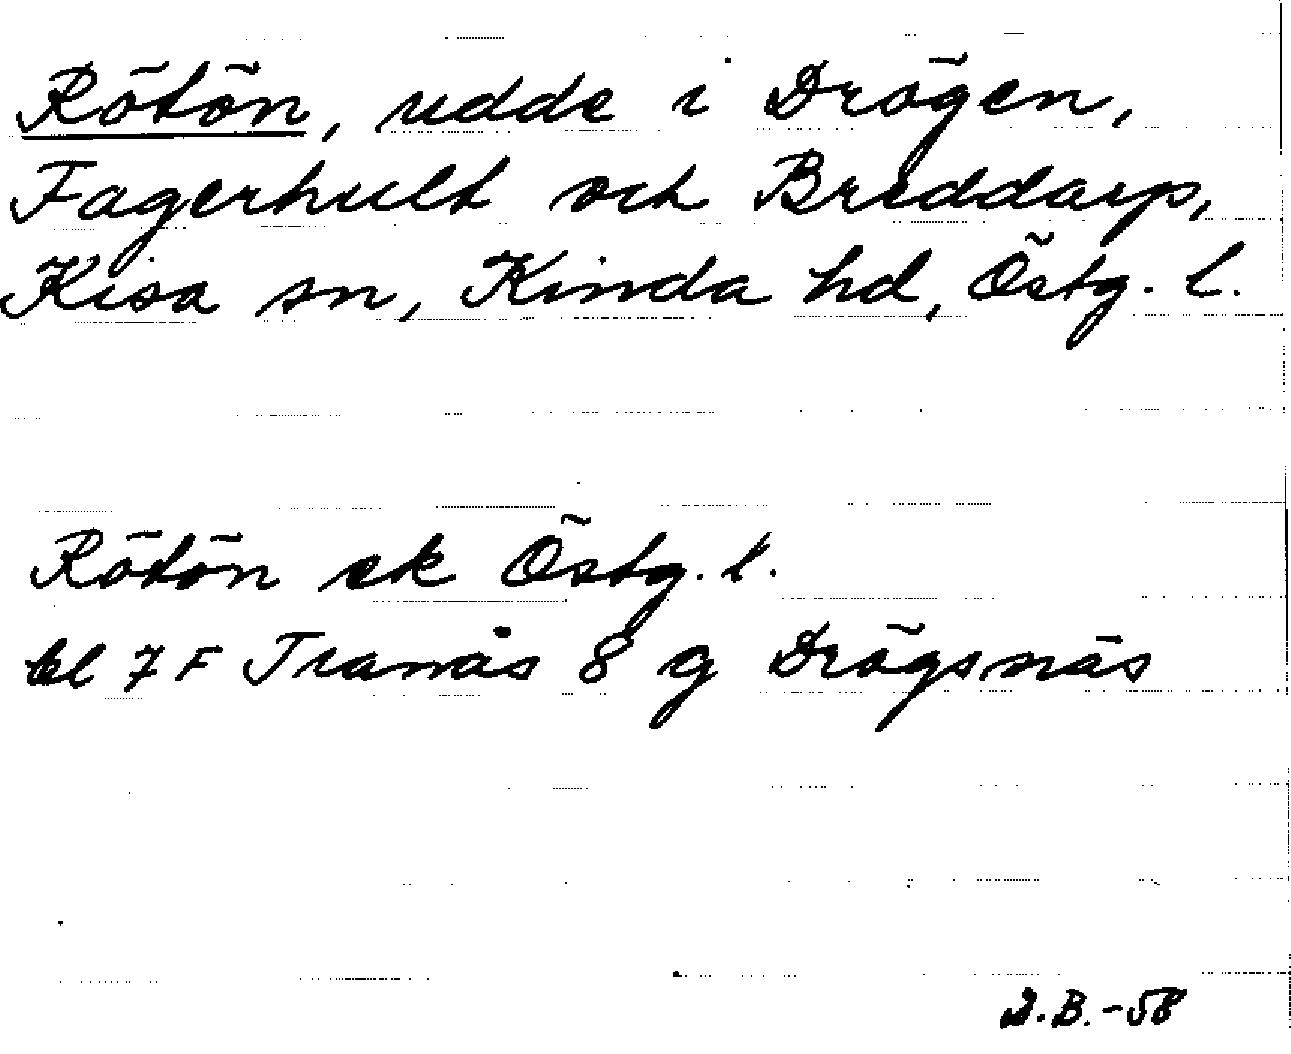 Rötön, udde i Drögen,
Fagerhult och Breddarp,
Kisa sn, Kinda hd, Östg. l.
Rötön ek Östg. l.
bl 7 F Tranås 8 g Drögsnäs
B.-58